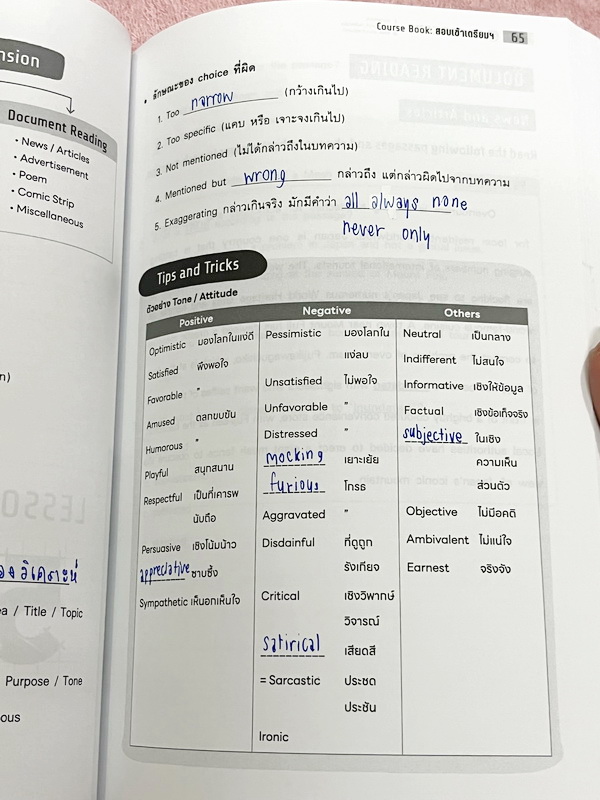 Course Book: สอบเข้าเตรียมฯ 65
nsion
Document Reading
• News / Articles
• Advertisement
• Poem
• Comic Strip
• Miscellaneous
a / Title / Topic
Purpose / Tone
ous
• ลักษณะของ choice ที่ผิด
1. Too narrow (กว้างเกินไป)
2. Too specific (แคบ หรือ เจาะจงเกินไป)
3. Not mentioned (ไม่ได้กล่าวถึงในบทความ)
4. Mentioned but wrong กล่าวถึง แต่กล่าวผิดไปจากบทความ
5. Exaggerating กล่าวเกินจริง มักมีคำว่า all always none
never only
Tips and Tricks
ตัวอย่าง Tone / Attitude
Positive Negative Others
Optimistic มองโลกในแง่ดี
Satisfied พึงพอใจ
Favorable "
Amused ตลกขบขัน
Humorous "
Playful สนุกสนาน
Respectful เป็นที่เคารพ
นับถือ
Persuasive เชิงโน้มน้าว
appreciative ซาบซึ้ง
Sympathetic เห็นอกเห็นใจ
Pessimistic มองโลกใน
แง่ลบ
Unsatisfied ไม่พอใจ
Unfavorable "
Distressed "
mocking เยาะเย้ย
furious โกรธ
Aggravated "
Disdainful ที่ดูถูก
รังเกียจ
Critical เชิงวิพากษ์
วิจารณ์
satirical เสียดสี
= Sarcastic ประชด
ประชัน
Ironic
Neutral เป็นกลาง
Indifferent ไม่สนใจ
Informative เชิงให้ข้อมูล
Factual เชิงข้อเท็จจริง
subjective ในเชิง
ความเห็น
ส่วนตัว
Objective ไม่มีอคติ
Ambivalent ไม่แน่ใจ
Earnest จริงจัง